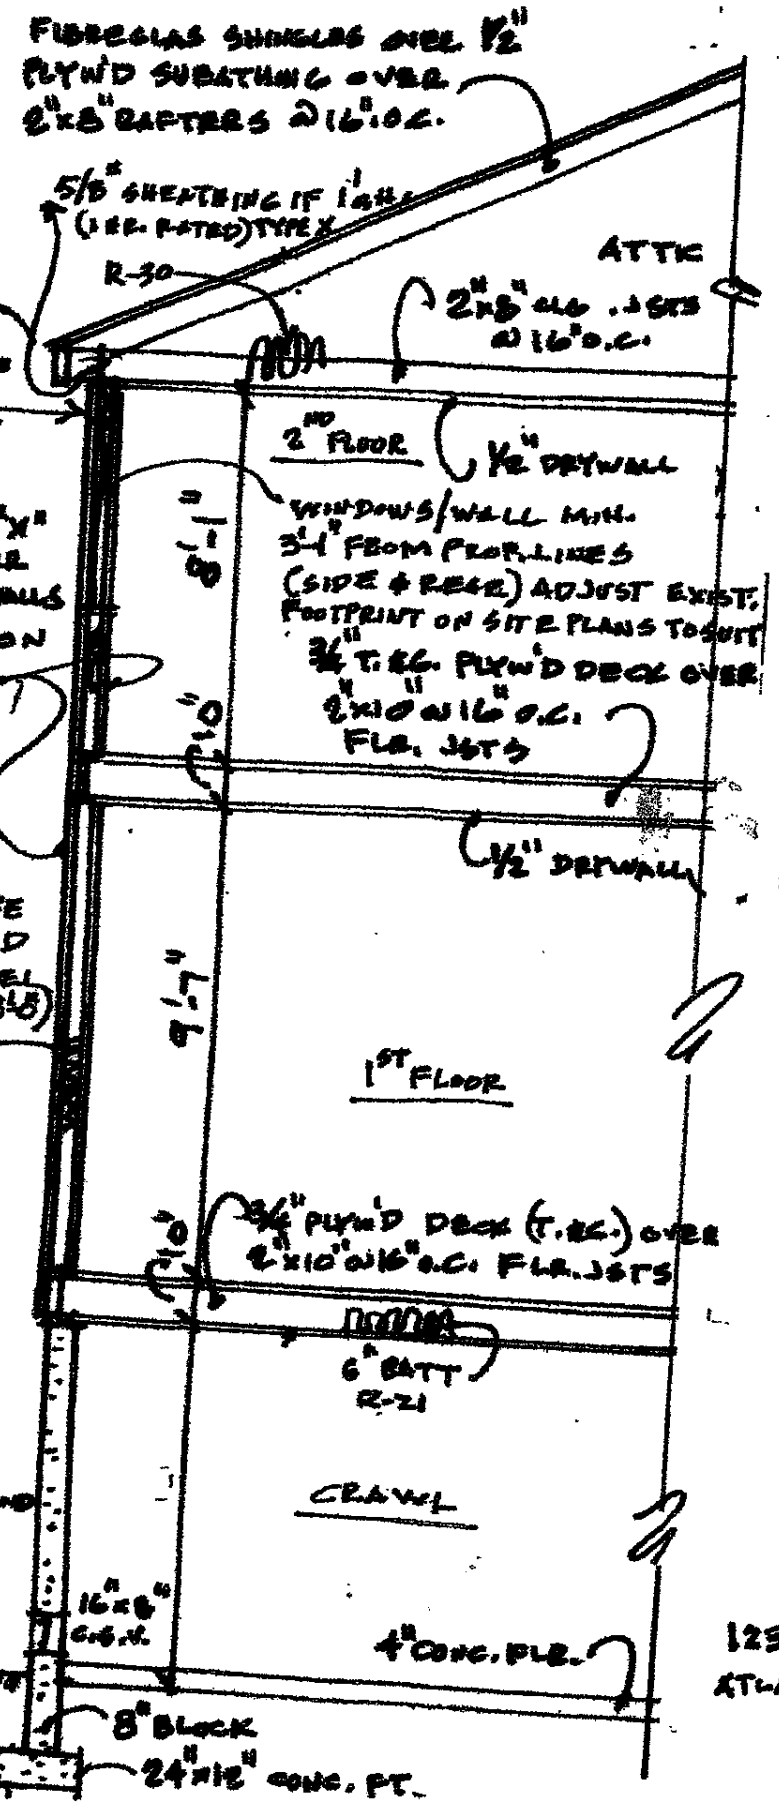 FIBREGLAS SHINGLES OVER 1/2"
PLYW'D SHEATHING OVER
2"x8" RAFTERS @ 16" O.C.
5/8" SHEATHING IF
(1 HR. RATED) TYPE X
R-30
ATTIC
2"x8" CLG. JSTS
@ 16" O.C.
2ND FLOOR
1/2" DRYWALL
8'-1"
WINDOWS/WALL MIN.
3'-1" FROM PROP. LINES
(SIDE & REAR) ADJUST EXIST.
FOOTPRINT ON SITE PLANS TO SUIT
3/4" T. &G. PLYW'D DECK OVER
2"x10" @ 16" O.C.
FLR. JSTS
1'-0"
1/2" DRYWALL
9'-7"
1ST FLOOR
3/4" PLYW'D DECK (T.&G.) OVER
2"x10" @ 16" O.C. FLR. JSTS
1'-0"
6" BATT
R-21
CRAWL
16"x8"
C.S.V.
4" CONC. FLR.
8" BLOCK
24"x12" CONC. FT.